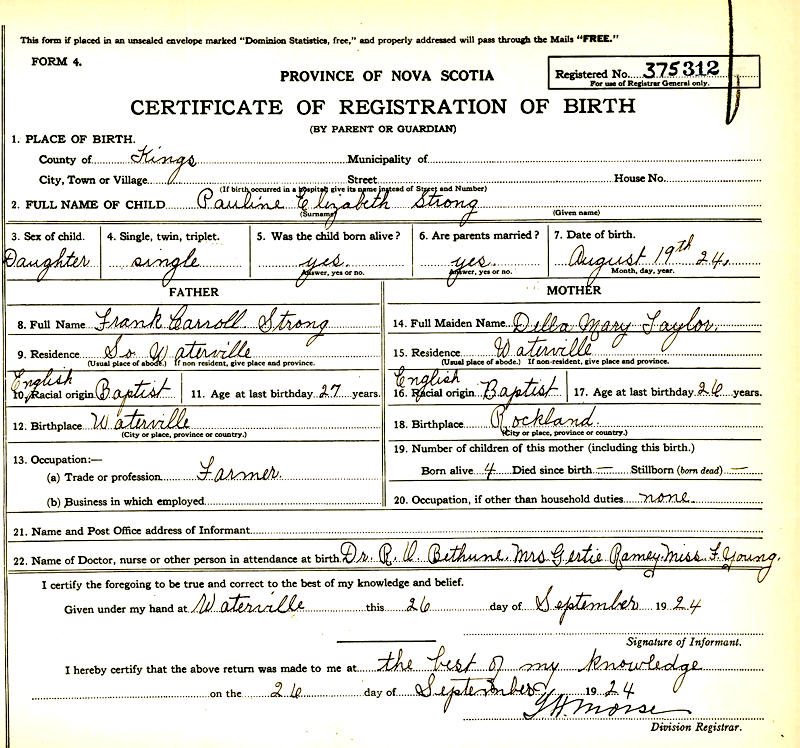 This form if placed in an unsealed envelope marked "Dominion Statistics, free," and properly addressed will pass through the Mails "FREE."
FORM 4.
Registered No. 375312
For use of Registrar General only.
PROVINCE OF NOVA SCOTIA
CERTIFICATE OF REGISTRATION OF BIRTH
(BY PARENT OR GUARDIAN)
1. PLACE OF BIRTH.
County of Kings Municipality of
City, Town or Village Street House No.
(If birth occurred in a hospital give its name instead of Street and Number)
2. FULL NAME OF CHILD Pauline Elizabeth Strong
(Surname) (Given name)
3. Sex of child. 4. Single, twin, triplet. 5. Was the child born alive? 6. Are parents married? 7. Date of birth.
Daughter single yes. yes. August 19th 24.
Answer, yes or no. Answer, yes or no. Month, day, year.
FATHER
8. Full Name Frank Carroll Strong
9. Residence So Waterville
(Usual place of abode.) If non resident, give place and province.
English
10. Racial origin Baptist 11. Age at last birthday 27 years.
12. Birthplace Waterville
(City or place, province or country.)
13. Occupation:—
(a) Trade or profession Farmer.
(b) Business in which employed
MOTHER
14. Full Maiden Name Della Mary Taylor.
15. Residence Waterville
(Usual place of abode.) If non-resident, give place and province.
English
16. Racial origin Baptist 17. Age at last birthday 26 years.
18. Birthplace Rockland.
(City or place, province or country.)
19. Number of children of this mother (including this birth.)
Born alive 4 Died since birth — Stillborn (born dead) —
20. Occupation, if other than household duties none.
21. Name and Post Office address of Informant
22. Name of Doctor, nurse or other person in attendance at birth Dr. R. O. Bethune. Mrs Gertie Ramey. Miss. F. Young.
I certify the foregoing to be true and correct to the best of my knowledge and belief.
Given under my hand at Waterville this 26 day of September 1924
Signature of Informant.
I hereby certify that the above return was made to me at the best of my knowledge
on the 26 day of September 1924
Morse
Division Registrar.